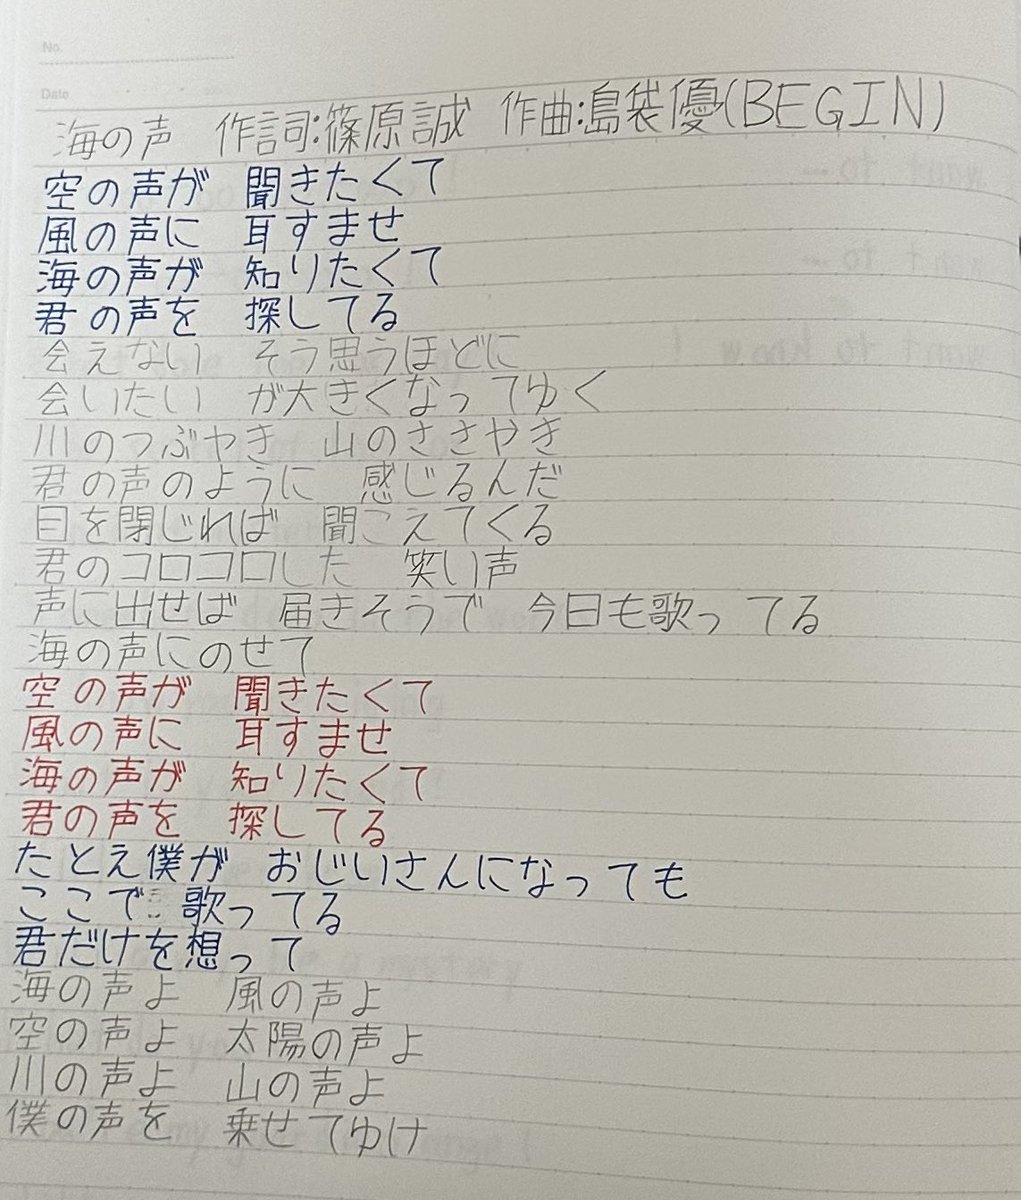 No.
Date
海の声 作詞:篠原誠 作曲:島袋優(BEGIN)
空の声が 聞きたくて
風の声に 耳すませ
海の声が 知りたくて
君の声を 探してる
会えない そう思うほどに
会いたい が大きくなってゆく
川のつぶやき 山のささやき
君の声のように 感じるんだ
目を閉じれば 聞こえてくる
君のコロコロした 笑い声
声に出せば 届きそうで 今日も歌ってる
海の声にのせて
空の声が 聞きたくて
風の声に 耳すませ
海の声が 知りたくて
君の声を 探してる
たとえ僕が おじいさんになっても
ここで 歌ってる
君だけを想って
海の声よ 風の声よ
空の声よ 太陽の声よ
川の声よ 山の声よ
僕の声を 乗せてゆけ